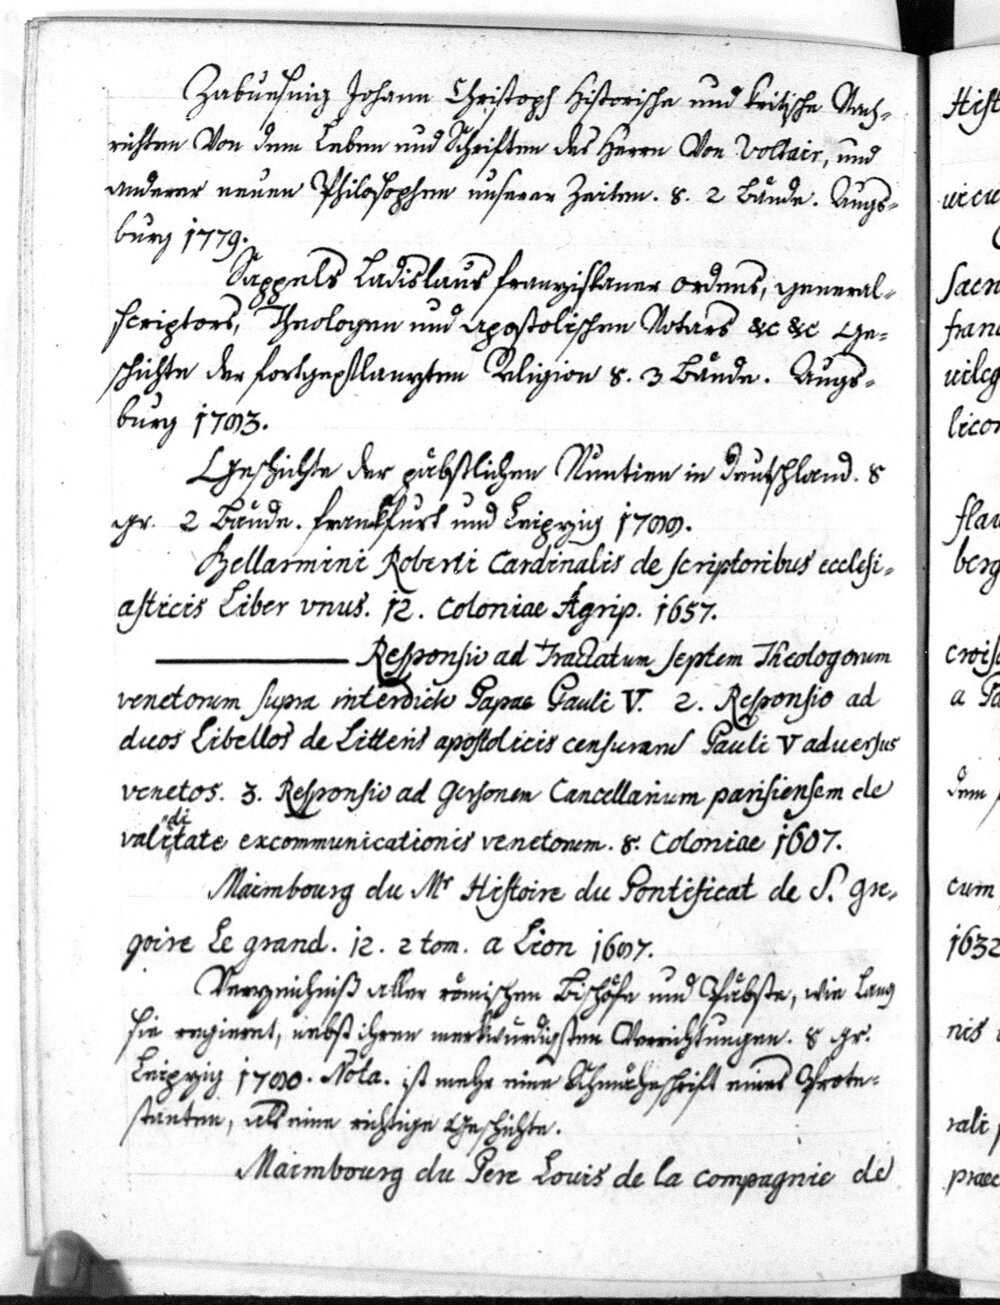 Zabuesnig Johann Christoph Historische und kritische Nach-
richten Von dem Leben und Schriften des Herrn Von Voltair, und
anderer neuen Philosophen unserer Zeiten. 8. 2 Bände. Augs-
burg 1779.
Sappels Ladislaus franziskaner ordens, general-
scriptors, Theologen und apostolischen Notars &c &c Ge-
schichte der fortgepflanzten Religion 8. 3 Bände. Augs-
burg
Geschichte der päbstlichen Nuntien in deutschland. 8
gr. 2 Bände. frankfurt und Leipzig
Bellarmini Roberti Cardinalis de scriptoribus ecclesi-
asticis Liber vnus. 12. Coloniae Agrip. 1657.
Responsio ad Tractatum septem Theologorum
venetorum supra interdicto Papae Pauli V. 2. Responsio ad
duos Libellos de Litteris apostolicis censurans Pauli V adversus
venetos. 3. Responsio ad Gersonem Cancellarium parisiensem de
validitate excommunicationis venetorum. 8. Coloniae 1607.
Maimbourg du Mr Histoire du Pontificat de S. Gre-
goire Le grand. 12. 2 tom. a Lion
Verzeichniß aller römischen Bischöfe und Päbste, wie Lang
sie regieret, nebst ihren merkwürdigsten Verrichtungen. 8 gr.
Leipzig Nota. ist mehr eine Schmäheschrift eines Prote-
stanten, als eine richtige Geschichte.
Maimbourg du Pere Louis de la compagnie de
Hist
uicu
sacn
franc
uileg
licon
flau
berg
croisa
a Pa
dem
cum
1632
nis
rali
praec